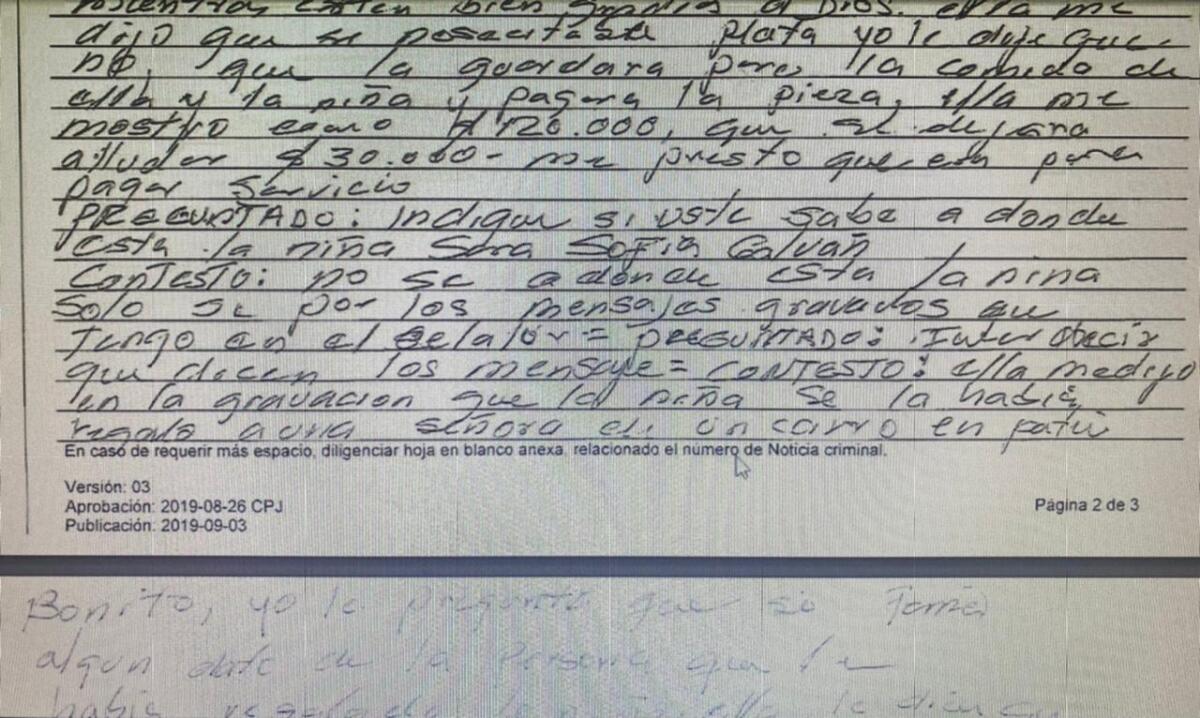 estén bien gracias a Dios. ella me
dijo que si posecitaba plata yo le dije que
no, que la guardara para la comida de
ella y la niña y pagara la pieza, ella me
mostro como $ 120.000, que se dejara
alludar $ 30.000- me presto que era para
pagar servicio
PREGUNTADO: Indique si uste sabe a donde
esta la niña Sara Sofia Galvan
Contesto: no se a donde esta la nina
Solo se por los mensajes gravados que
Tengo en el selalor = PREGUNTADO:
que dicen los mensaje = CONTESTO: ella medijo
en la gravacion que la niña se la habia
regalo a una señora en un carro en patio
En caso de requerir más espacio, diligenciar hoja en blanco anexa, relacionado el número de Noticia criminal.
Versión: 03
Aprobación: 2019-08-26 CPJ
Publicación: 2019-09-03
Página 2 de 3
Bonito, yo le pregunte que si Tenia
algun dato de la Persona que le
habia regalado la niña ella le dice